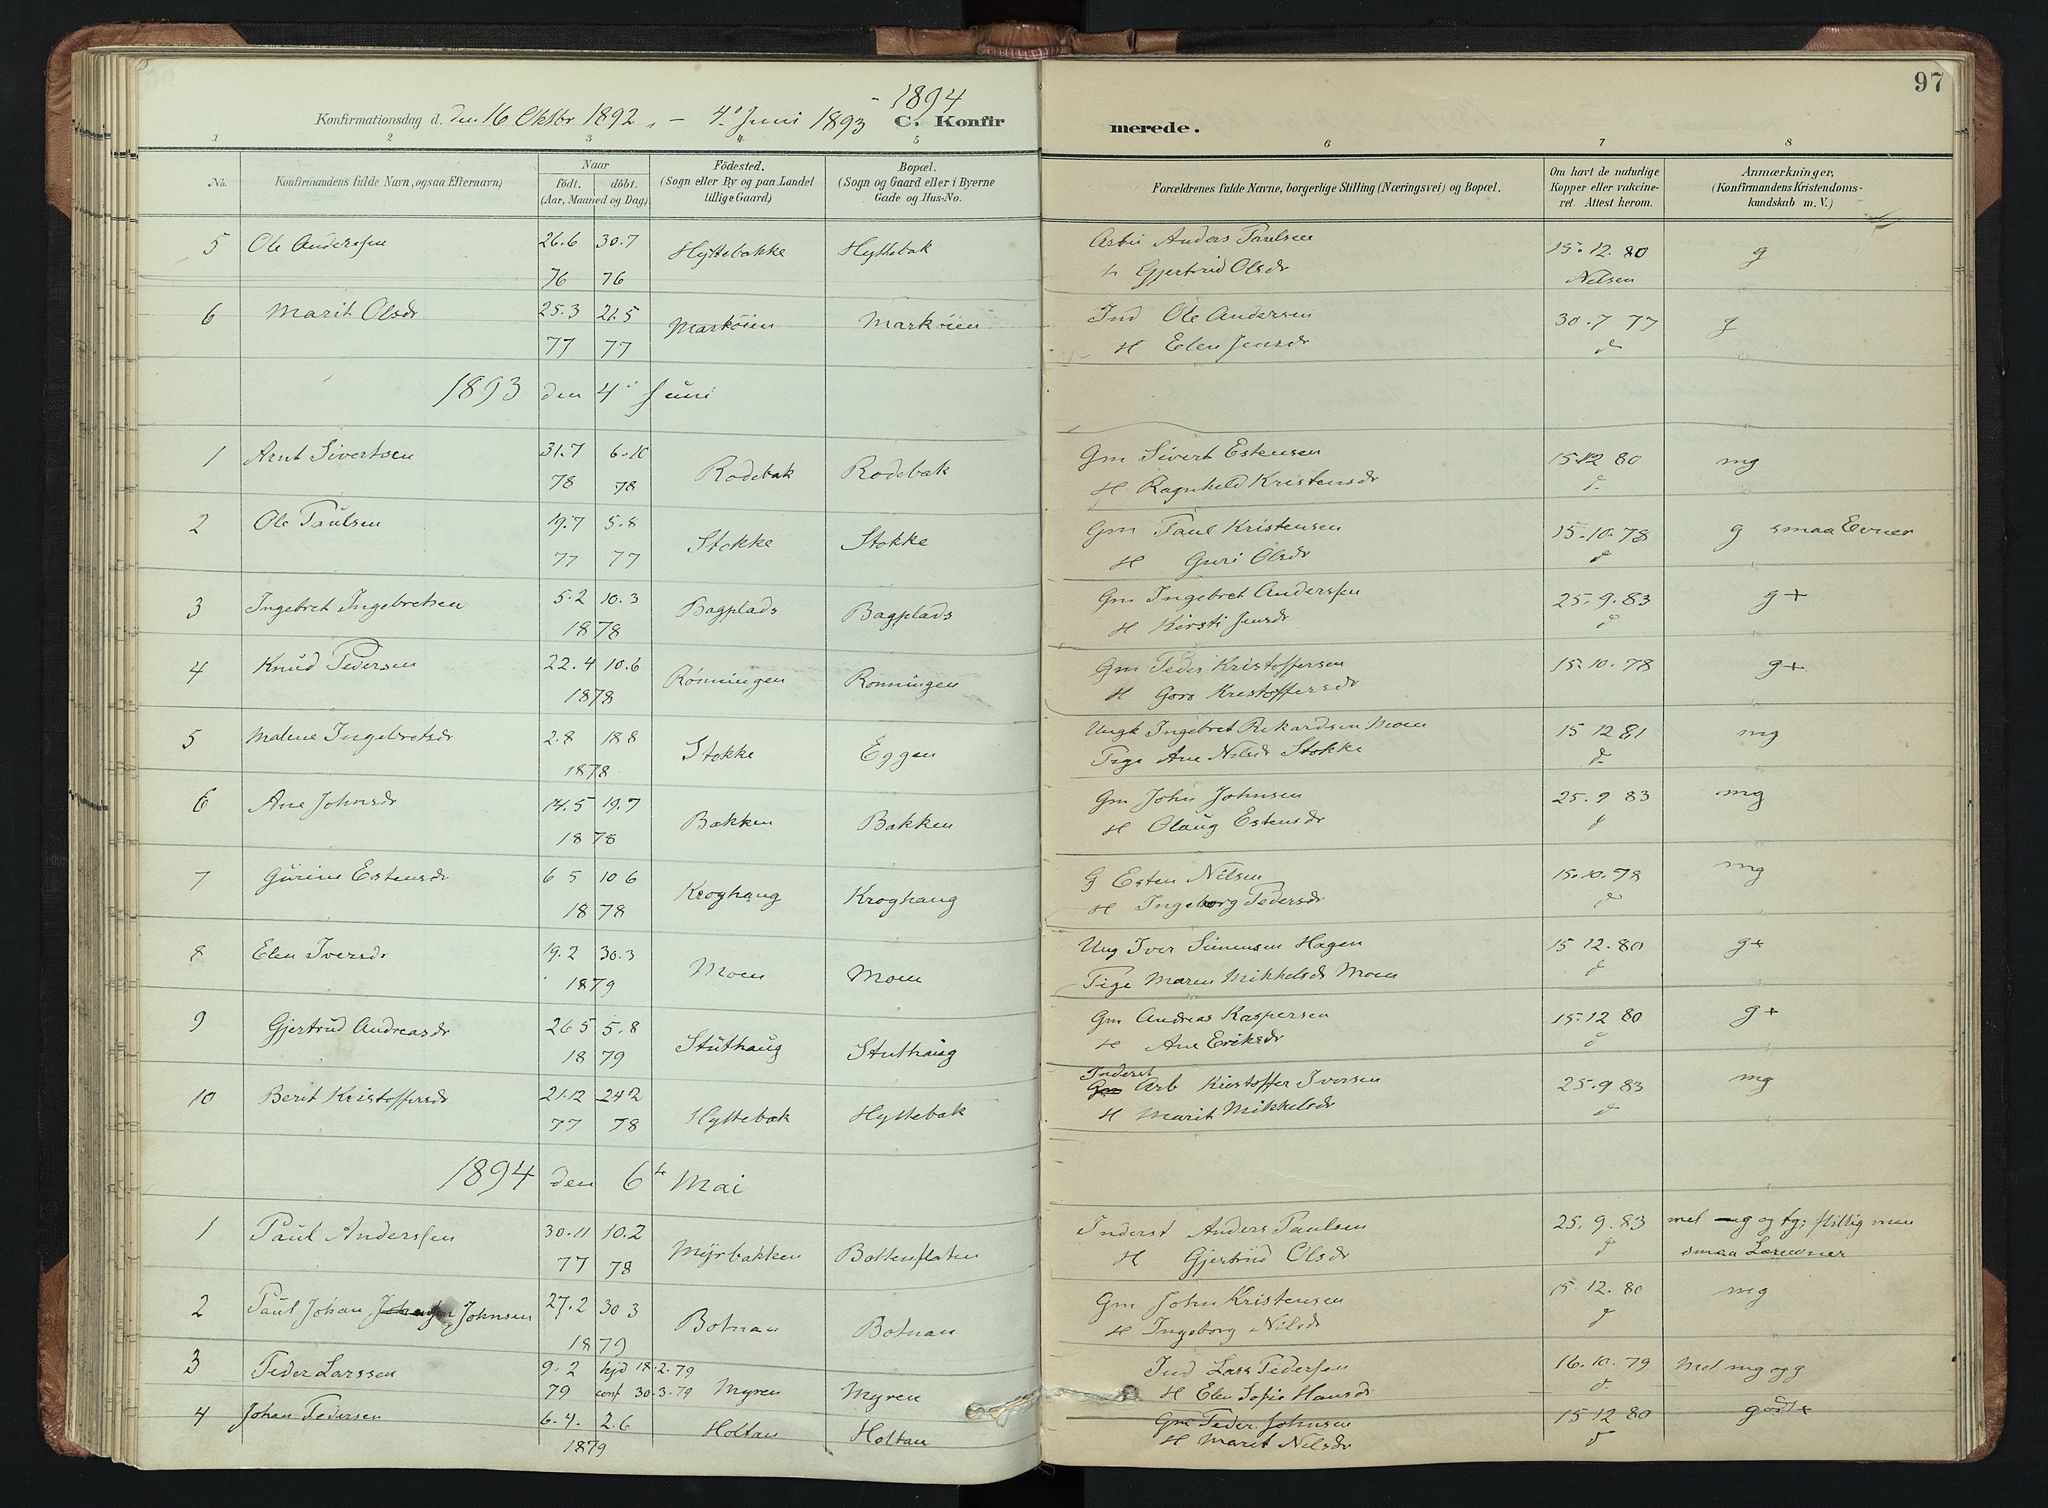 97
1894
Konfirmationsdag d. den 16 Oktbr 1892, - 4de Juni 1893 C. Konfirmerede.
1 2 3 4 5 6 7 8
No. Konfirmandens fulde Navn, ogsaa Efternavn) Naar födt. döbt. (Aar, Maaned og Dag) Födested. (Sogn eller By og paa Landet tillige Gaard) Bopæl. (Sogn og Gaard eller i Byerne Gade og Hus-No. Forældrenes fulde Navne, borgerlige Stilling (Næringsvei) og Bopæl. Om havt de naturlige Kopper eller vakcineret. Attest herom. Anmærkninger, (Konfirmandens Kristendomskundskab m. V.)
5 Ole Anderssen 26.6 30.7 Hyttebakke Hyttebak Anders Paulsen 15.12.80 g
76 76 Gjertrud Olsdr Nilsen
6 Marit Olsdr 25.3 21.5 Markøien Markøien Ind Ole Andersen 30.7 77 g
77 77 H Elen Jensdr d
1893 den 4de Juni
1 Arnt Sivertsen 31.7 6.10 Rodebak Rodebæk Gm Sivert Estensen 15.12 80 mg
78 78 H Ragnhild Kristensdr d
2 Ole Paulsen 19.7 5.8 Stokke Stokke Gm Paul Kristensen 15.10.78 g smaa Evner
77 77 H Guri Olsdr d
3 Ingebret Ingebretsen 5.2 10.3 Bagplads Bagplads Gm Ingebret Anderssen 25.9.83 g+
1878 H Kirsti Jensdr d
4 Knud Pedersen 22.4 10.6 Rønningen Rønningen Gm Peder Kristoffersen 15.10.78 g+
1878 H Goro Kristoffersdr
5 Malene Ingebretsdr 2.8 18.8 Stokke Eggen Ungk Ingebret Rikardsen Moen 15 12 81 mg
1878 Pige Ane Nilsdr Stokke d
6 Ane Johnsdr 14.5 19.7 Bakken Bakken Gm John Johnsen 25.9 83 mg
1878 H Olaug Estensdr d
7 Gurine Estensdr 6 5 10 6 Kroghaug Kroghaug G Esten Nilsen 15.10.78 mg
1878 H Ingeborg Pedersdr d
8 Elen Iversdr 19.2 30.3 Moen Moen Ung Iver Simensen Hagen 15 12.80 g+
1879 Pige Maren Mikkelsdr Moen d
9 Gjertrud Andreasdr 26 5 5.8 Stuthaug Stuthaug Gm Andreas Kaspersen 15.12 80 g+
1879 H Ane Eriksdr d
10 Berit Kristoffersdr 21.12 24 2 Hyttebæk Hyttebak Inderst Gm Arb Kristoffer Iversen 25.9 83 mg
77 78 H Marit Mikkelsdr d
1894 den 6te Mai
1 Paul Anderssen 30.11 10.2 Myrbakken Bottenflaten Inderst Anders Paulsen 25.9.83 met mg og tg; flittig men
77 78 H Gjertrud Olsdr d smaa Læreevner
2 Paul Johan Johansen Johnsen 27.2 30 3 Botnan Botnan Gm John Kristensen 15.12.80 mg
1879 H Ingeborg Nilsdr d
3 Peder Larssen 9.2 hjd 18.2.79 Ind Lars Pederssen 16.10.79 Met mg og g
79 conf 30.3.79 Myren Myren H Elen Sofie Hansdr d
4 Johan Pedersen 6.4. 2.6 Holtan Holtan Gm Peder Johnsen 15 12 80 godt+
1879 H Marit Nilsdr d